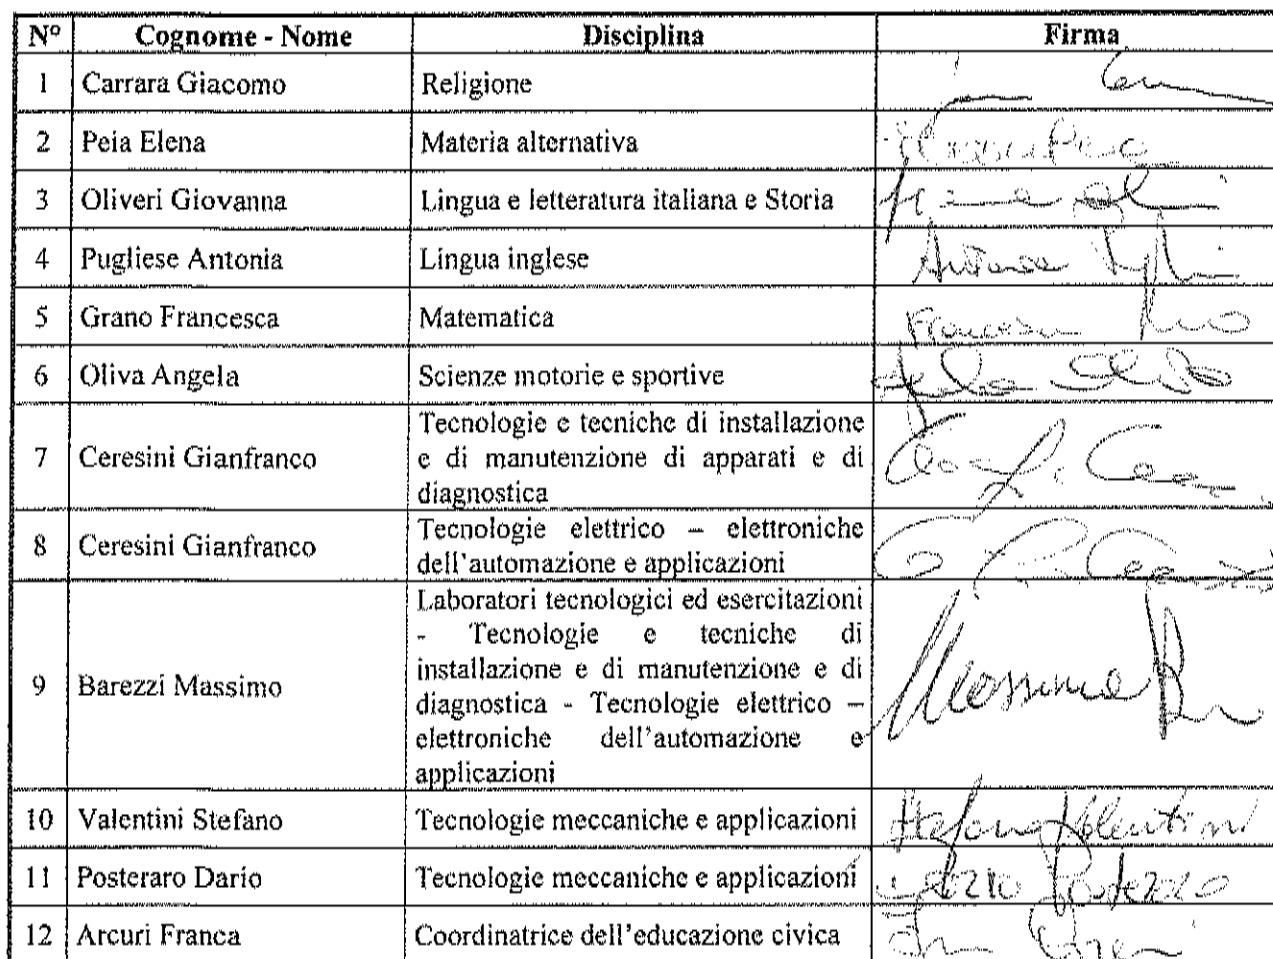 N° Cognome - Nome Disciplina Firma
1 Carrara Giacomo Religione
2 Peia Elena Materia alternativa
3 Oliveri Giovanna Lingua e letteratura italiana e Storia
4 Pugliese Antonia Lingua inglese Antonia
5 Grano Francesca Matematica Francesca
6 Oliva Angela Scienze motorie e sportive
7 Ceresini Gianfranco Tecnologie e tecniche di installazione
e di manutenzione di apparati e di
diagnostica
8 Ceresini Gianfranco Tecnologie elettrico – elettroniche
dell'automazione e applicazioni
9 Barezzi Massimo Laboratori tecnologici ed esercitazioni
- Tecnologie e tecniche di
installazione e di manutenzione e di
diagnostica - Tecnologie elettrico –
elettroniche dell'automazione e
applicazioni
Massimo
10 Valentini Stefano Tecnologie meccaniche e applicazioni Stefano Valentini
11 Posteraro Dario Tecnologie meccaniche e applicazioni Dario Posteraro
12 Arcuri Franca Coordinatrice dell'educazione civica